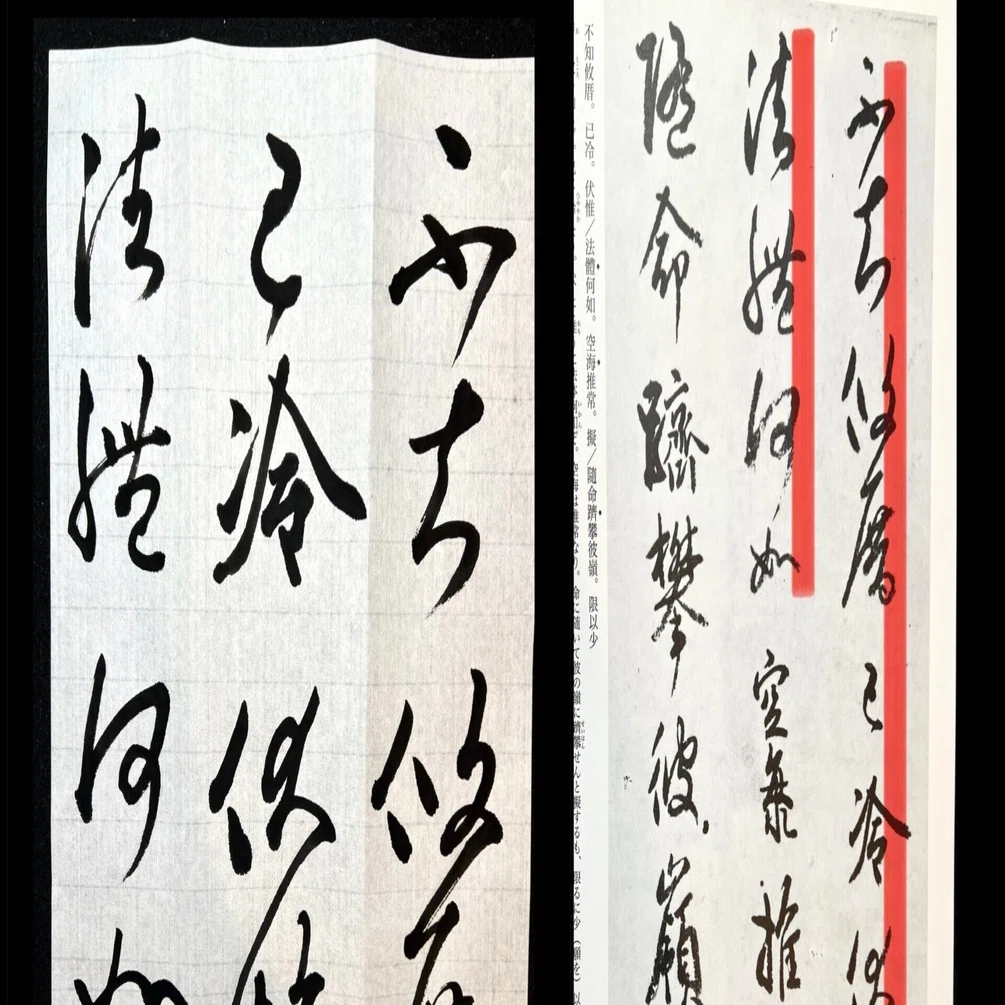 不知攸
已冷伏
法體何如
不知攸厝已冷伏
法體何如空海推
隨命躋攀彼嶺
不知攸厝。已冷。伏惟／法體何如。空海推常。擬／隨命躋攀彼嶺。限以少
空海は推常なり。命に随いて彼の嶺に躋攀せんと擬するも、限るに少